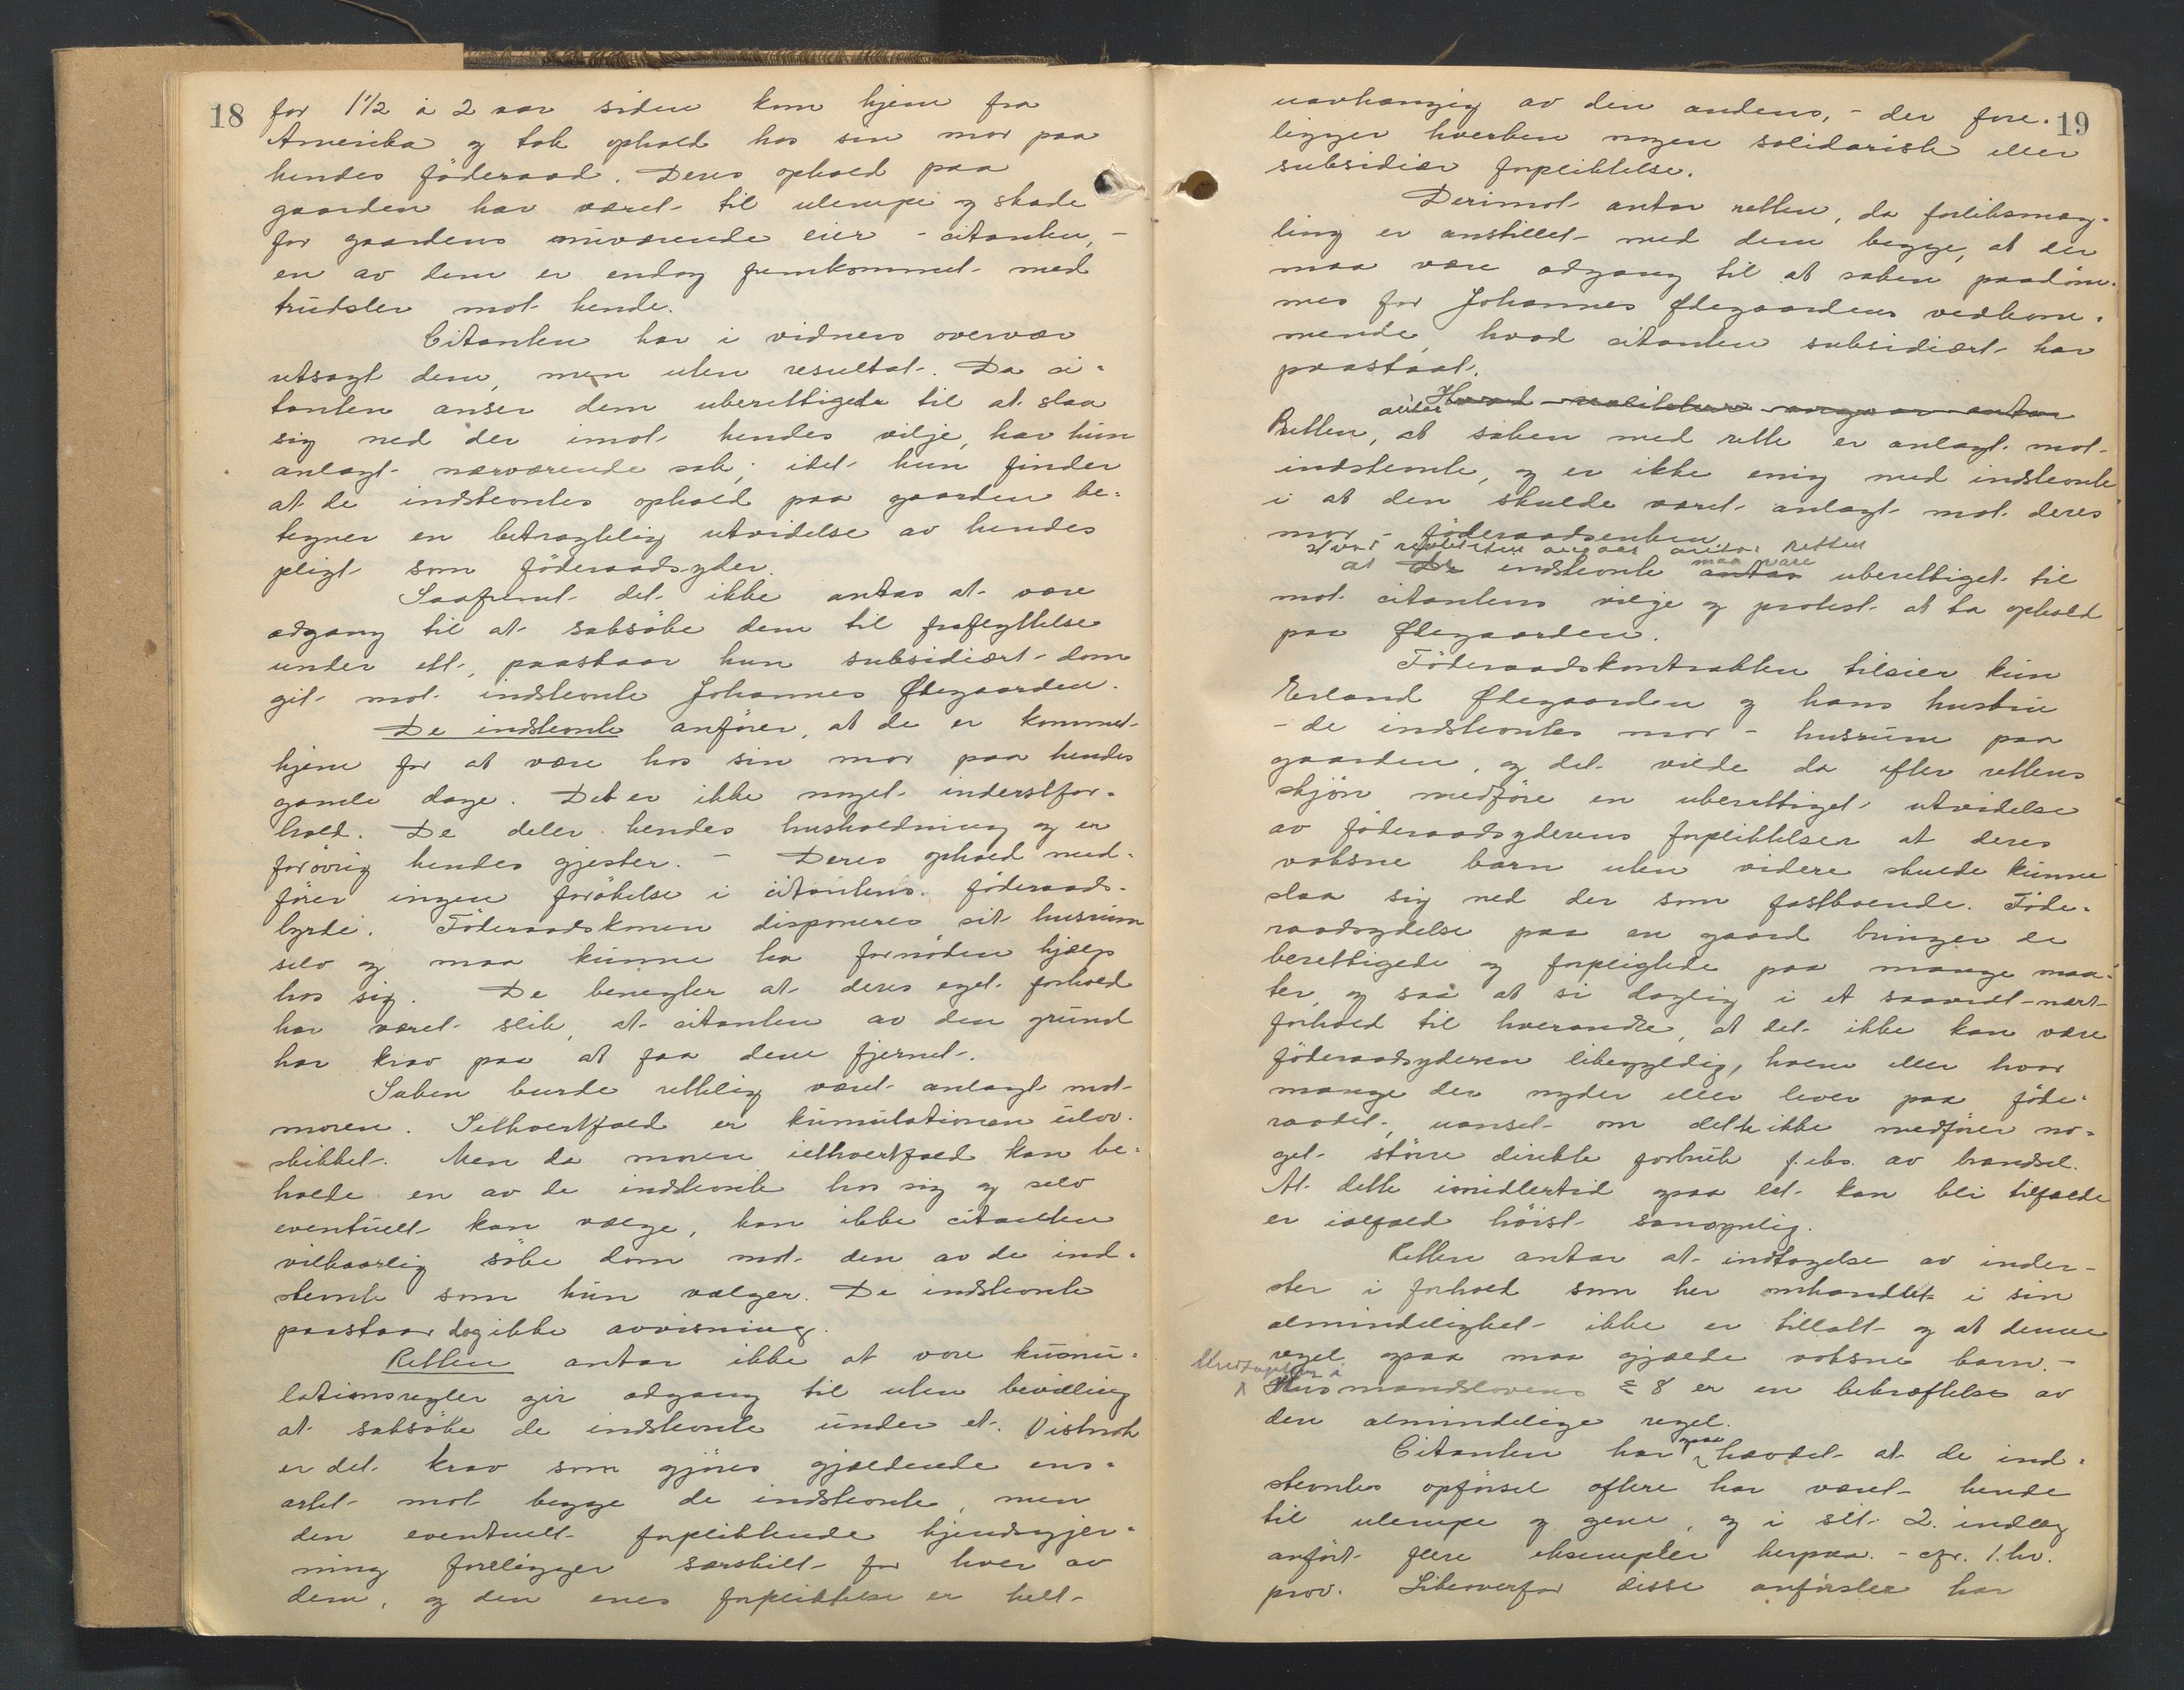 18
for 1 1/2 à 2 aar siden kom hjem fra
Amerika og tok ophold hos sin mor paa
hendes föderaad. Deres ophold paa
gaarden har været til ulempe og skade
for gaardens nuværende eier - citanten, -
en av dem er endog fremkommet med
trudsler mot hende.
Citanten har i vidners overvær
utsagt dem, men uten resultat. Da ci-
tanten anser dem uberettigede til at slaa
sig ned der imot hendes vilje, har hun
anlagt nærværende sak; idet hun finder
at de indstevntes ophold paa gaarden be-
tegner en betragtelig utvidelse av hendes
pligt som föderaadsyder.
Saafremt det ikke antas at være
adgang til at saksöke dem til fraflyttelse
under ett, paastaar hun subsidiært dom
git mot indstevnte Johannes Ødegaarden.
De indstevnte anförer, at de er kommet
hjem for at være hos sin mor paa hendes
gamle dage. Det er ikke noget inderstfor-
hold. De deler hendes husholdning og er
forövrig hendes gjester. - Deres ophold med-
förer ingen forökelse i citantens föderaads-
byrde. Föderaadskonen disponerer sit husrum
selv og maa kunne ha fornöden hjælp
hos sig. De benegter at deres eget forhold
har været slik, at citanten av den grund
har krav paa at faa dem fjernet.
Saken burde rettelig været anlagt mot
moren. Ialhvertfald er kumulationen ulov-
stikket. Men da moren ialhvertfald kan be-
holde en av de indstevnte hos sig og selv
eventuelt kan vælge, kan ikke citanten
vilkaarlig söke dom mot den av de ind-
stevnte som hun vælger. De indstevnte
paastaar dog ikke avvisning.
Retten antar ikke at vore kumu-
lationsregler gir adgang til uten bevilling
at saksöke de indstevnte under et. Vistnok
er det krav som gjöres gjældende ens-
artet mot begge de indstevnte, men
den eventuelt forpliktende kjendsgjer-
ning foreligger særskilt for hver av
dem, og den enes forpliktelse er helt
19
uavhængig av den andens, - der fore-
ligger hverken nogen solidarisk eller
subsidiær forpliktelse.
Derimot antar retten, da forliksmæg-
ling er anstillet med dem begge, at der
maa være adgang til at saken paadöm-
mes for Johannes Ødegaardens vedkom-
mende, hvad citanten subsidiært har
paastaat.
Hvad realiteten angaar antar
antar
Retten, at saken med rette er anlagt mot
indstevnte, og er ikke enig med indstevnte
i at den skulde været anlagt mot deres
mor - föderaadsenken.
Hvad realiteten angaar antar retten
at De indstevnte antar maa være uberettiget til
mot citantens vilje og protest at ta ophold
paa Ødegaarden.
Föderaadskontrakten tilsier kun
Erland Ødegaarden og hans hustru
- de indstevntes mor - husrum paa
gaarden, og det vilde da efter rettens
skjön medföre en uberettiget utvidelse
av föderaadsyderens forpliktelser at deres
voksne barn uten videre skulde kunne
slaa sig ned der som fastboende. Föde-
raadsydelse paa en gaard bringer de
berettigede og forpligtede paa mange maa-
ter, og saa at si daglig i et saavidt nært
forhold til hverandre, at det ikke kan være
föderaadsyderen likegyldig, hvem eller hvor
mange der nyder eller lever paa föde-
raadet, uanset om dette ikke medförer no-
get större direkte forbruk f.eks. av brændsel.
At dette imidlertid ogsaa let kan bli tilfælde
er ialfald höist sansynlig.
Retten antar at indtagelse av inder-
ster i forhold som her omhandlet i sin
almindelighet ikke er tillatt og at denne
regel ogsaa maa gjælde voksne barn. -
Undtagelsen i
Husmandslovens § 8 er en bekræftelse av
den almindelige regel.
Citanten har ogsaa hævdet at de ind-
stevntes opförsel oftere har været hende
til ulempe og gene, og i sit 2. indlæg
anfört flere eksempler herpaa. - cfr. 1. hv.
prov. Likeoverfor disse anförsler har